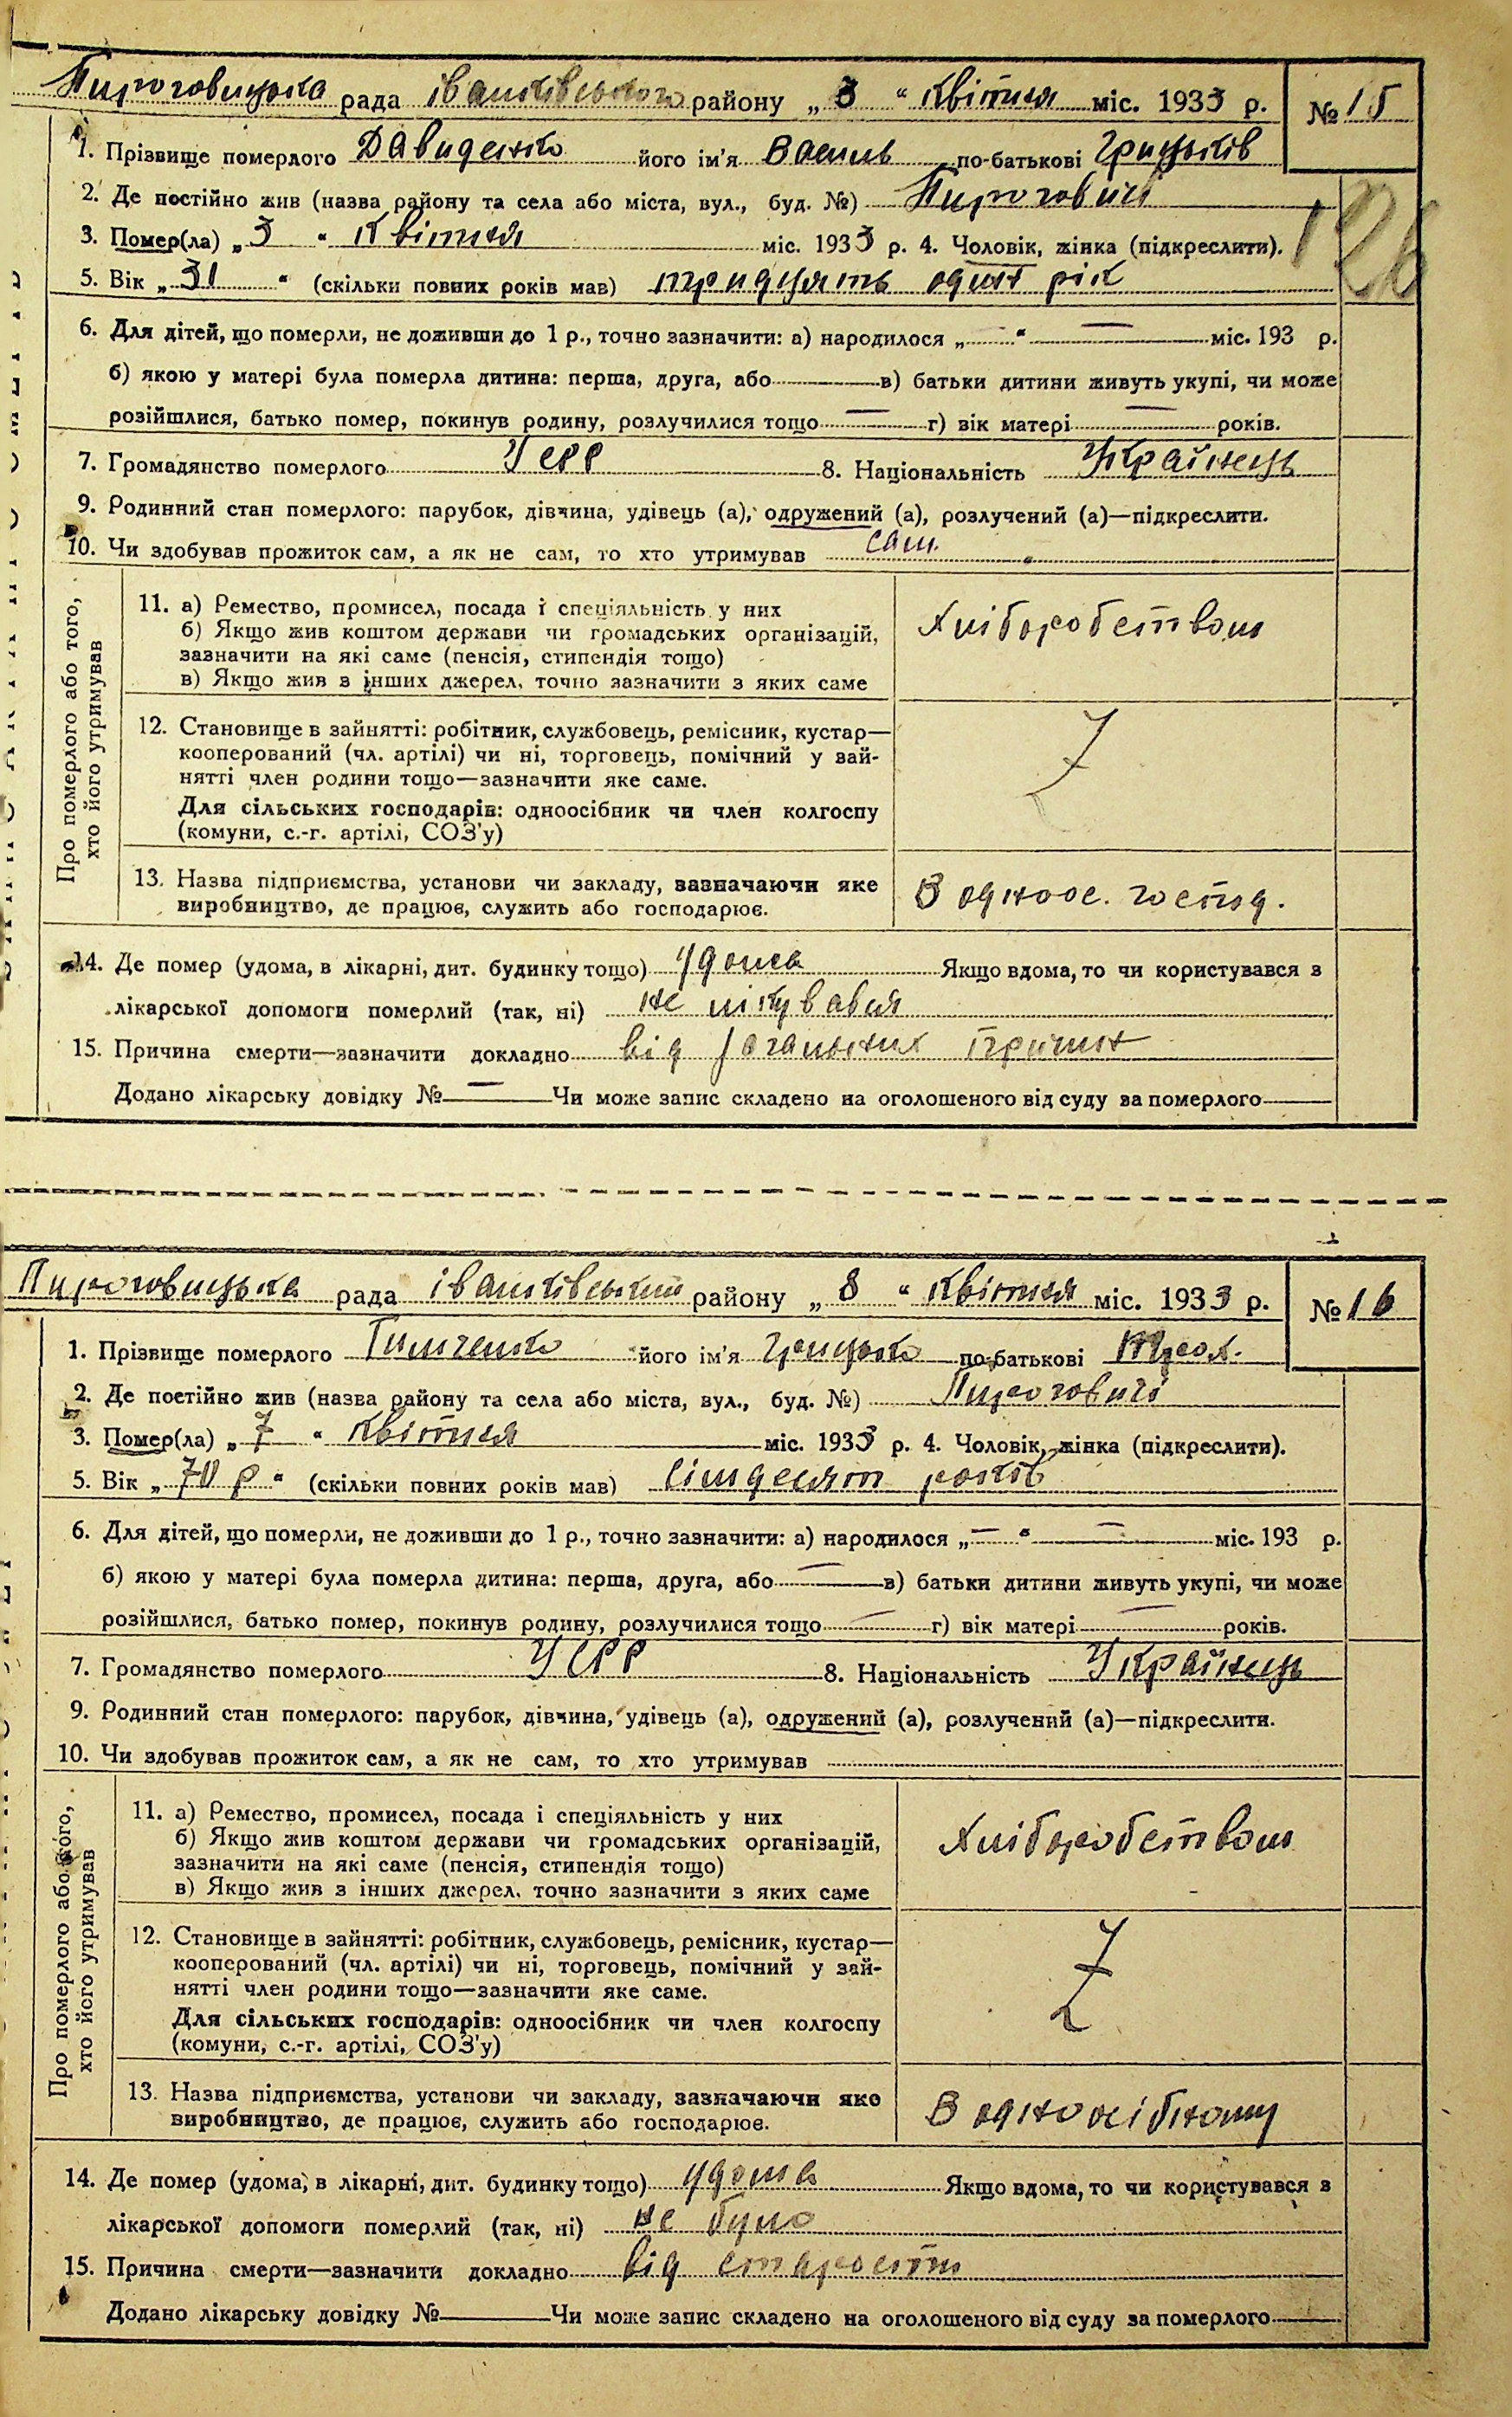 Пироговицька рада іванківського району „ 3 “ квітня міс. 1933 р. № 15
1. Прізвище померлого Давиденко його ім'я Василь по-батькові Грицьків
2. Де постійно жив (назва району та села або міста, вул., буд. №) Пироговичі
3. Помер(ла) „ 3 “ квітня міс. 1933 р. 4. Чоловік, жінка (підкреслити).
126
5. Вік „ 31 “ (скільки повних років мав) тридцять один рік
6. Для дітей, що померли, не доживши до 1 р., точно зазначити: а) народилося „ — “ — міс. 193 р.
б) якою у матері була померла дитина: перша, друга, або — в) батьки дитини живуть укупі, чи може
розійшлися, батько помер, покинув родину, розлучилися тощо — г) вік матері — років.
7. Громадянство померлого УСРР 8. Національність Українець
9. Родинний стан померлого: парубок, дівчина, удівець (а), одружений (а), розлучений (а)—підкреслити.
10. Чи здобував прожиток сам, а як не сам, то хто утримував сам.
Про померлого або того, хто його утримував
11. а) Ремество, промисел, посада і спеціяльність у них
б) Якщо жив коштом держави чи громадських організацій,
зазначити на які саме (пенсія, стипендія тощо)
в) Якщо жив з інших джерел, точно зазначити з яких саме
Хліборобством
12. Становище в зайнятті: робітник, службовець, ремісник, кустар—
кооперований (чл. артілі) чи ні, торговець, помічний у зай-
нятті член родини тощо—зазначити яке саме.
Для сільських господарів: одноосібник чи член колгоспу
(комуни, с.-г. артілі, СОЗ'у)
13. Назва підприємства, установи чи закладу, зазначаючи яке
виробництво, де працює, служить або господарює.
В одноос. господ.
14. Де помер (удома, в лікарні, дит. будинку тощо) удома Якщо вдома, то чи користувався з
лікарської допомоги померлий (так, ні) не лікувався
15. Причина смерти—зазначити докладно від загальних причин
Додано лікарську довідку № — Чи може запис складено на оголошеного від суду за померлого —
Пироговицька рада іванківський району „ 8 “ квітня міс. 1933 р. № 16
1. Прізвище померлого Тимченко його ім'я Грицько по-батькові
2. Де постійно жив (назва району та села або міста, вул., буд. №) Пироговичі
3. Помер(ла) „ 7 “ квітня міс. 1933 р. 4. Чоловік, жінка (підкреслити).
5. Вік „ 70 р “ (скільки повних років мав) сімдесят років
6. Для дітей, що померли, не доживши до 1 р., точно зазначити: а) народилося „ — “ — міс. 193 р.
б) якою у матері була померла дитина: перша, друга, або — в) батьки дитини живуть укупі, чи може
розійшлися, батько помер, покинув родину, розлучилися тощо — г) вік матері — років.
7. Громадянство померлого УСРР 8. Національність Українець
9. Родинний стан померлого: парубок, дівчина, удівець (а), одружений (а), розлучений (а)—підкреслити.
10. Чи здобував прожиток сам, а як не сам, то хто утримував
Про померлого або того, хто його утримував
11. а) Ремество, промисел, посада і спеціяльність у них
б) Якщо жив коштом держави чи громадських організацій,
зазначити на які саме (пенсія, стипендія тощо)
в) Якщо жив з інших джерел, точно зазначити з яких саме
Хліборобством
12. Становище в зайнятті: робітник, службовець, ремісник, кустар—
кооперований (чл. артілі) чи ні, торговець, помічний у зай-
нятті член родини тощо—зазначити яке саме.
Для сільських господарів: одноосібник чи член колгоспу
(комуни, с.-г. артілі, СОЗ'у)
13. Назва підприємства, установи чи закладу, зазначаючи яке
виробництво, де працює, служить або господарює.
В одноосібному
14. Де помер (удома, в лікарні, дит. будинку тощо) удома Якщо вдома, то чи користувався з
лікарської допомоги померлий (так, ні) не було
15. Причина смерти—зазначити докладно від старости
Додано лікарську довідку № — Чи може запис складено на оголошеного від суду за померлого —